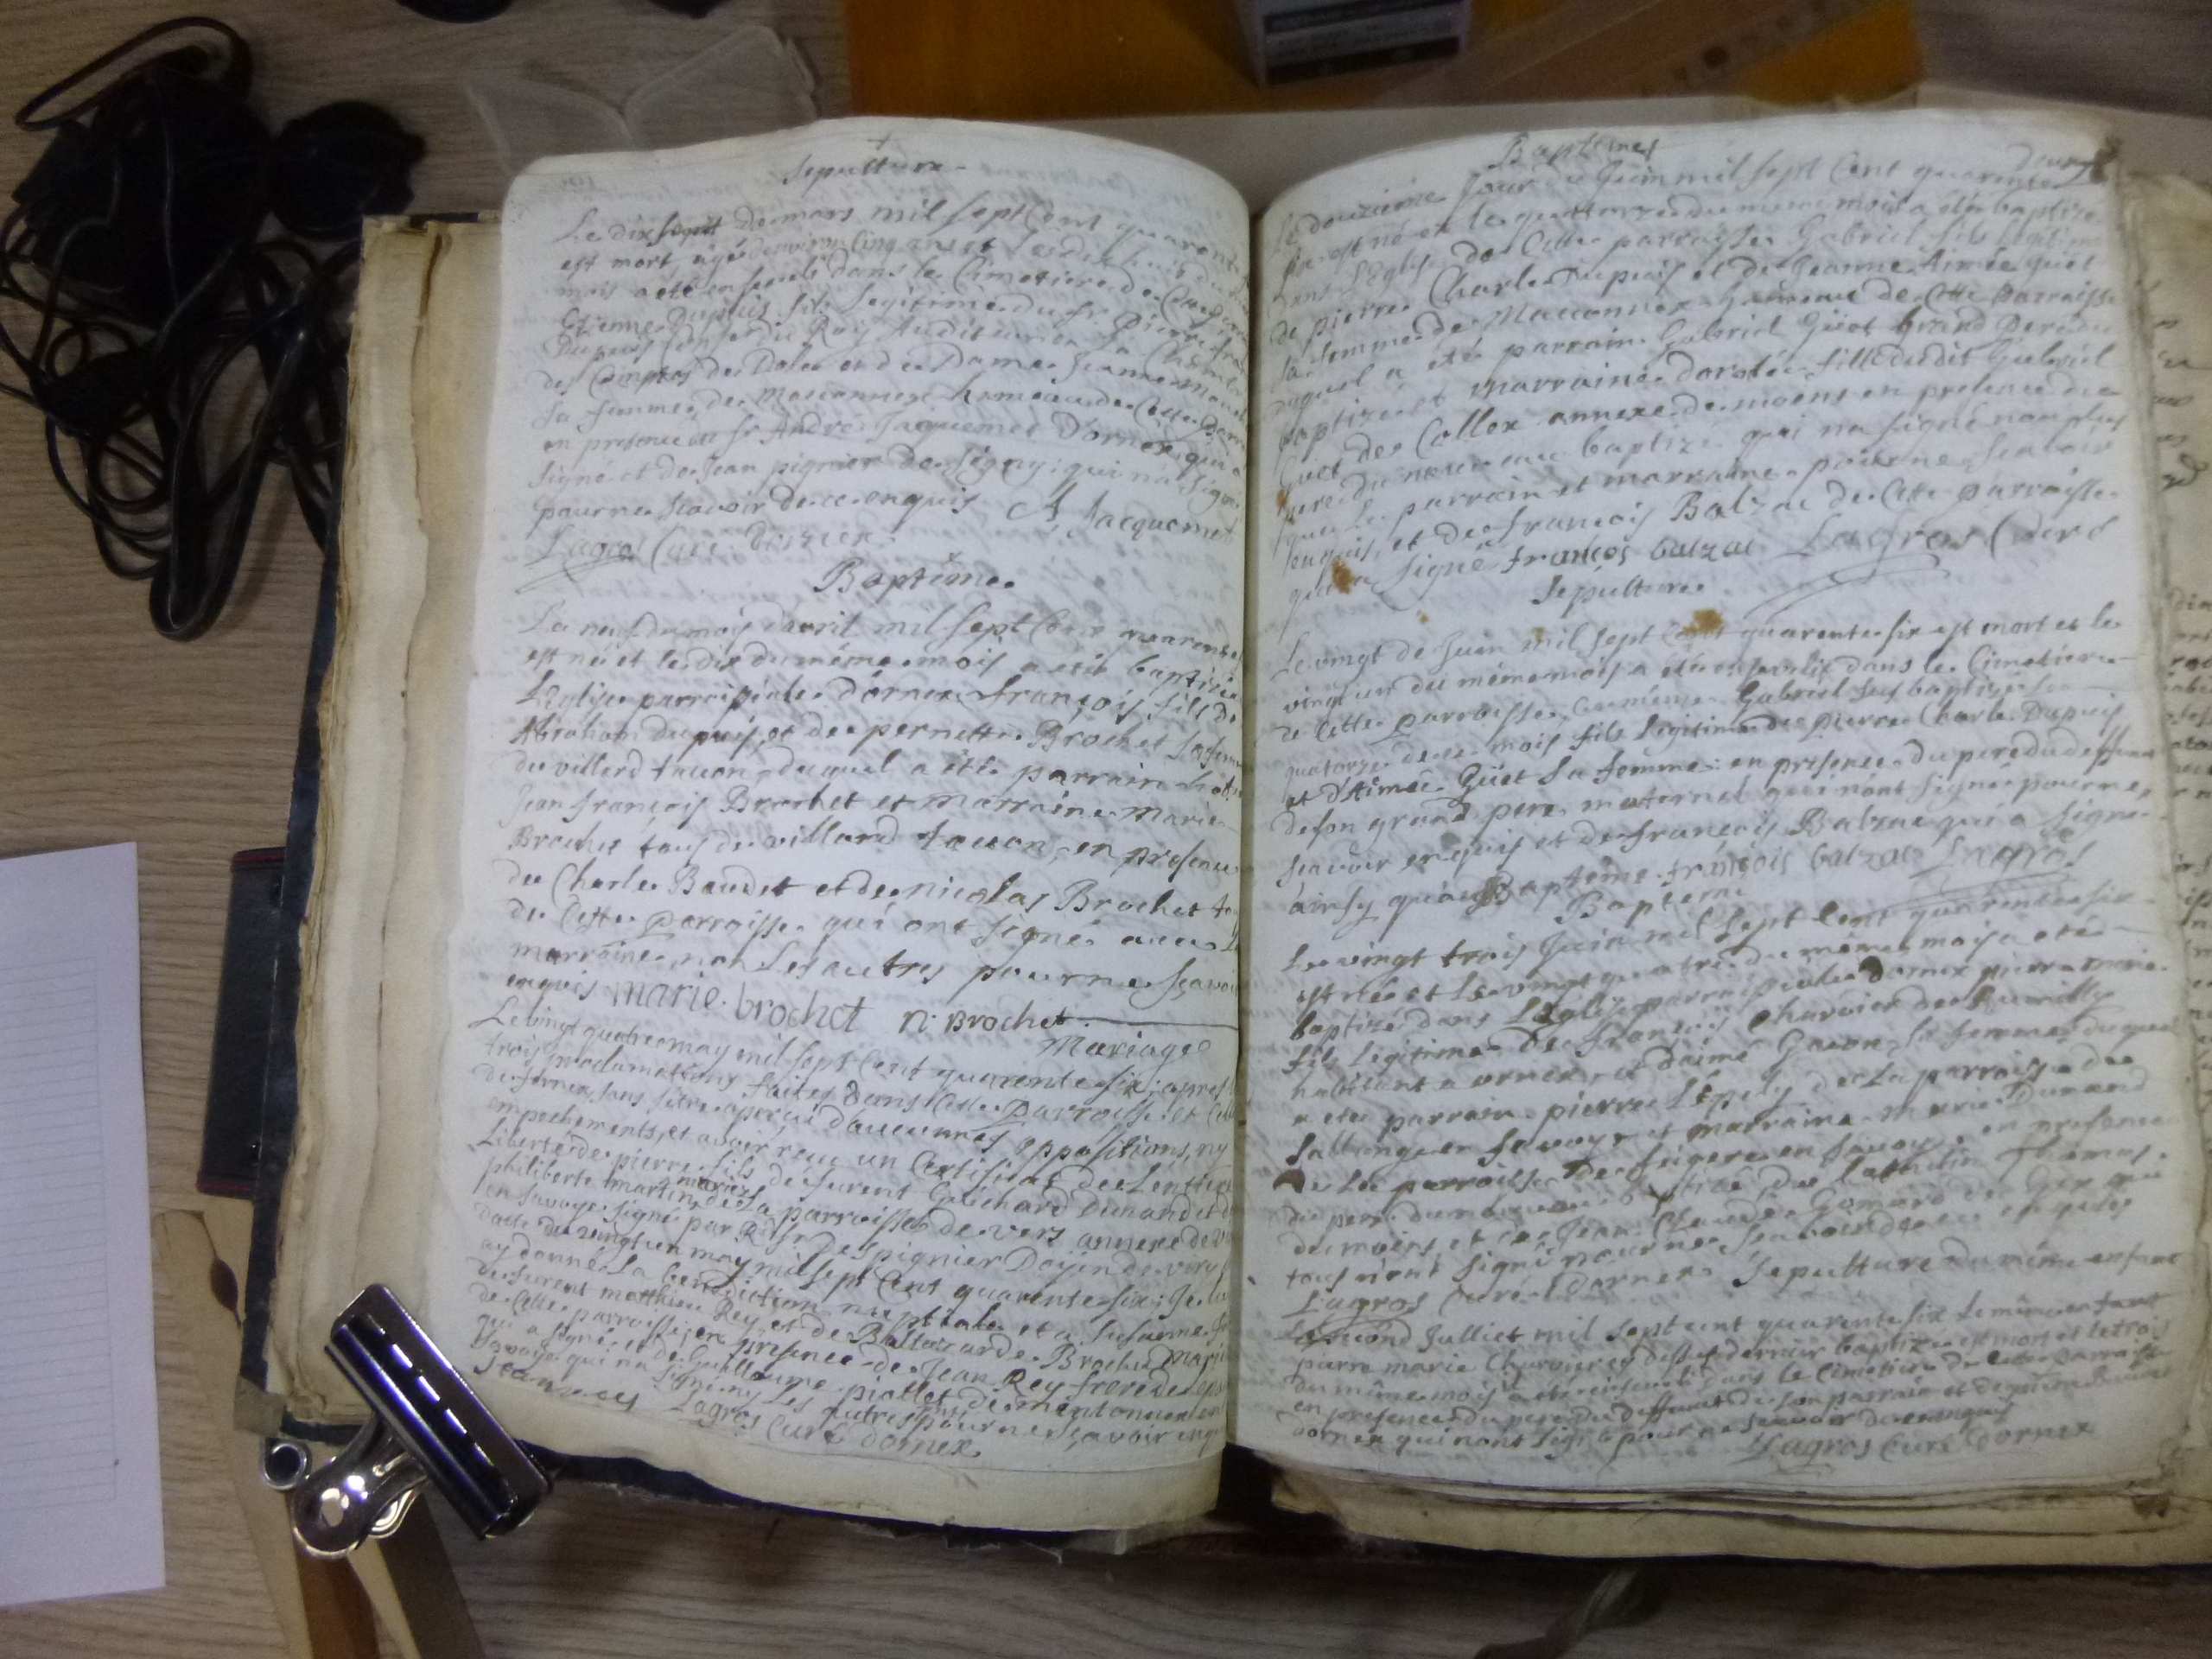 Sepulture
Le dix sept de mars mil sept Cent quarent
est mort agé denviron Cinq ans et le dix huit du
mois a eté enseveli dans le Cimetiere de
Etienne Dupuis fils legitime du Sr. Pierre
Dupuis du Roy Auditeur en la Cham
des Comptes de Dole et de Dame Jeanne
sa femme de Maconnex hameau de Cette Parr
en presence du Sr André Jaquemet D'ornex qui a
signé et de Jean pignier de Segny qui n'a signé
pour ne scavoir de ce enquis A Jacquemet
Lagros Curé D'ornex
Baptême
Le neuf du mois davril mil sept Cent quarente
est né et le dix du même mois a eté baptisé
L'Eglise parroissiale d'ornex françois fils de
Abraham dupuis et de pernette Brochet sa femme
du villard tacon duquel a été parrain
Jean françois Brochet et marraine marie
Brochet tous du villard tacon en presence
de Charle Baudet et de nicolas Brochet
de Cette parroisse qui ont signé avec la
marraine non les autres pour ne sçavoir
enquis marie brochet n. Brochet
Mariage
Le vingt quatre may mil sept Cent quarente six ; apres
trois proclamations faites dans Cette Parroisse et
de fernex, sans s'etre aperçu d'aucunnes oppositions, ny
empechements, et avoir receu un Certificat de
Liberté de pierre fils de furent Guichard Dunand et
philiberte martin mariez de la parroisse de vers annexe de
en Savoye signé par Rd Sr Despignier Doyen de viry
datté du vingt un may mil sept Cent quarente six ; Je
ay donné la benediction nuptiale et a Susanne
de furent matthieu Rey et de Baltazarde Brochet
de Cette parroisse ; en presence de Jean Rey frere de
qui a signé et de Guillaume piollet de
Savoye qui n'a signé ny les autres pour ne scavoir enquis
Jean rey Lagros Curé dornex
Baptemes
Le douzieme Jour de Juin mil sept Cent quarente
six est né et le quattorze du meme mois a eté baptize
dans L'Eglise de Cette parroisse Gabriel fils legitime
de pierre Charle Dupuis et de Jeanne Aimée Guet
sa femme de Maconnex hameau de Cette parroisse
duquel a eté parrain Gabriel Guet Grand Pere du
baptizé et marraine dorotée fille dudit Gabriel
Guet de Collex annexe de moens en presence du
pere du nouveau baptizé qui na signé non plus
que le parrain et marraine pour ne scavoir
enquis, et de françois Balzac de Cette parroisse
qui a signé françois balzac Lagros Curé
Sepulture
Le vingt de Juin mil sept Cent quarente six est mort et le
vingt un du même mois a eté enseveli dans le Cimetiere
de Cette parroisse Gabriel baptizé le
quatorze de ce mois fils legitime de pierre Charle Dupuis
et d'Aimée Guet sa femme : en presence du pere du deffunt
de son grand pere maternel qui n'ont signé pour ne
scavoir enquis et de françois Balzac qui a signé
ainsy qu'au Baptême françois balzac Lagros
Baptême
Le vingt trois Juin mil sept Cent quarente six
est né et le vingt quatre du même mois a eté
baptizé dans L'Eglise parroissiale dornex pierre marie
fils legitime de françois Charvier de Rumilly
habitant a ornex, et daimé Gacon sa femme duquel
a eté parrain pierre de la parroisse de
Sallange en Savoye et marraine marie Dunand
de la parroisse de en Savoye en presence
du pere du nouveau Thomas
de moens et de Jean Claude Gomard de Gex qui
tous n'ont signé pour ne scavoir de ce enquis
Lagros Curé Dornex Sepulture du même enfant
Le second Julliet mil sept cent quarente six le même enfant
pierre marie Charvier dernier baptizé est mort et le trois
du même mois a eté enseveli dans le Cimetiere de Cette parroisse
en presence du pere du deffunt de son parrain et de
dornex qui n'ont signé pour ne scavoir de ce enquis
Lagros Curé dornex